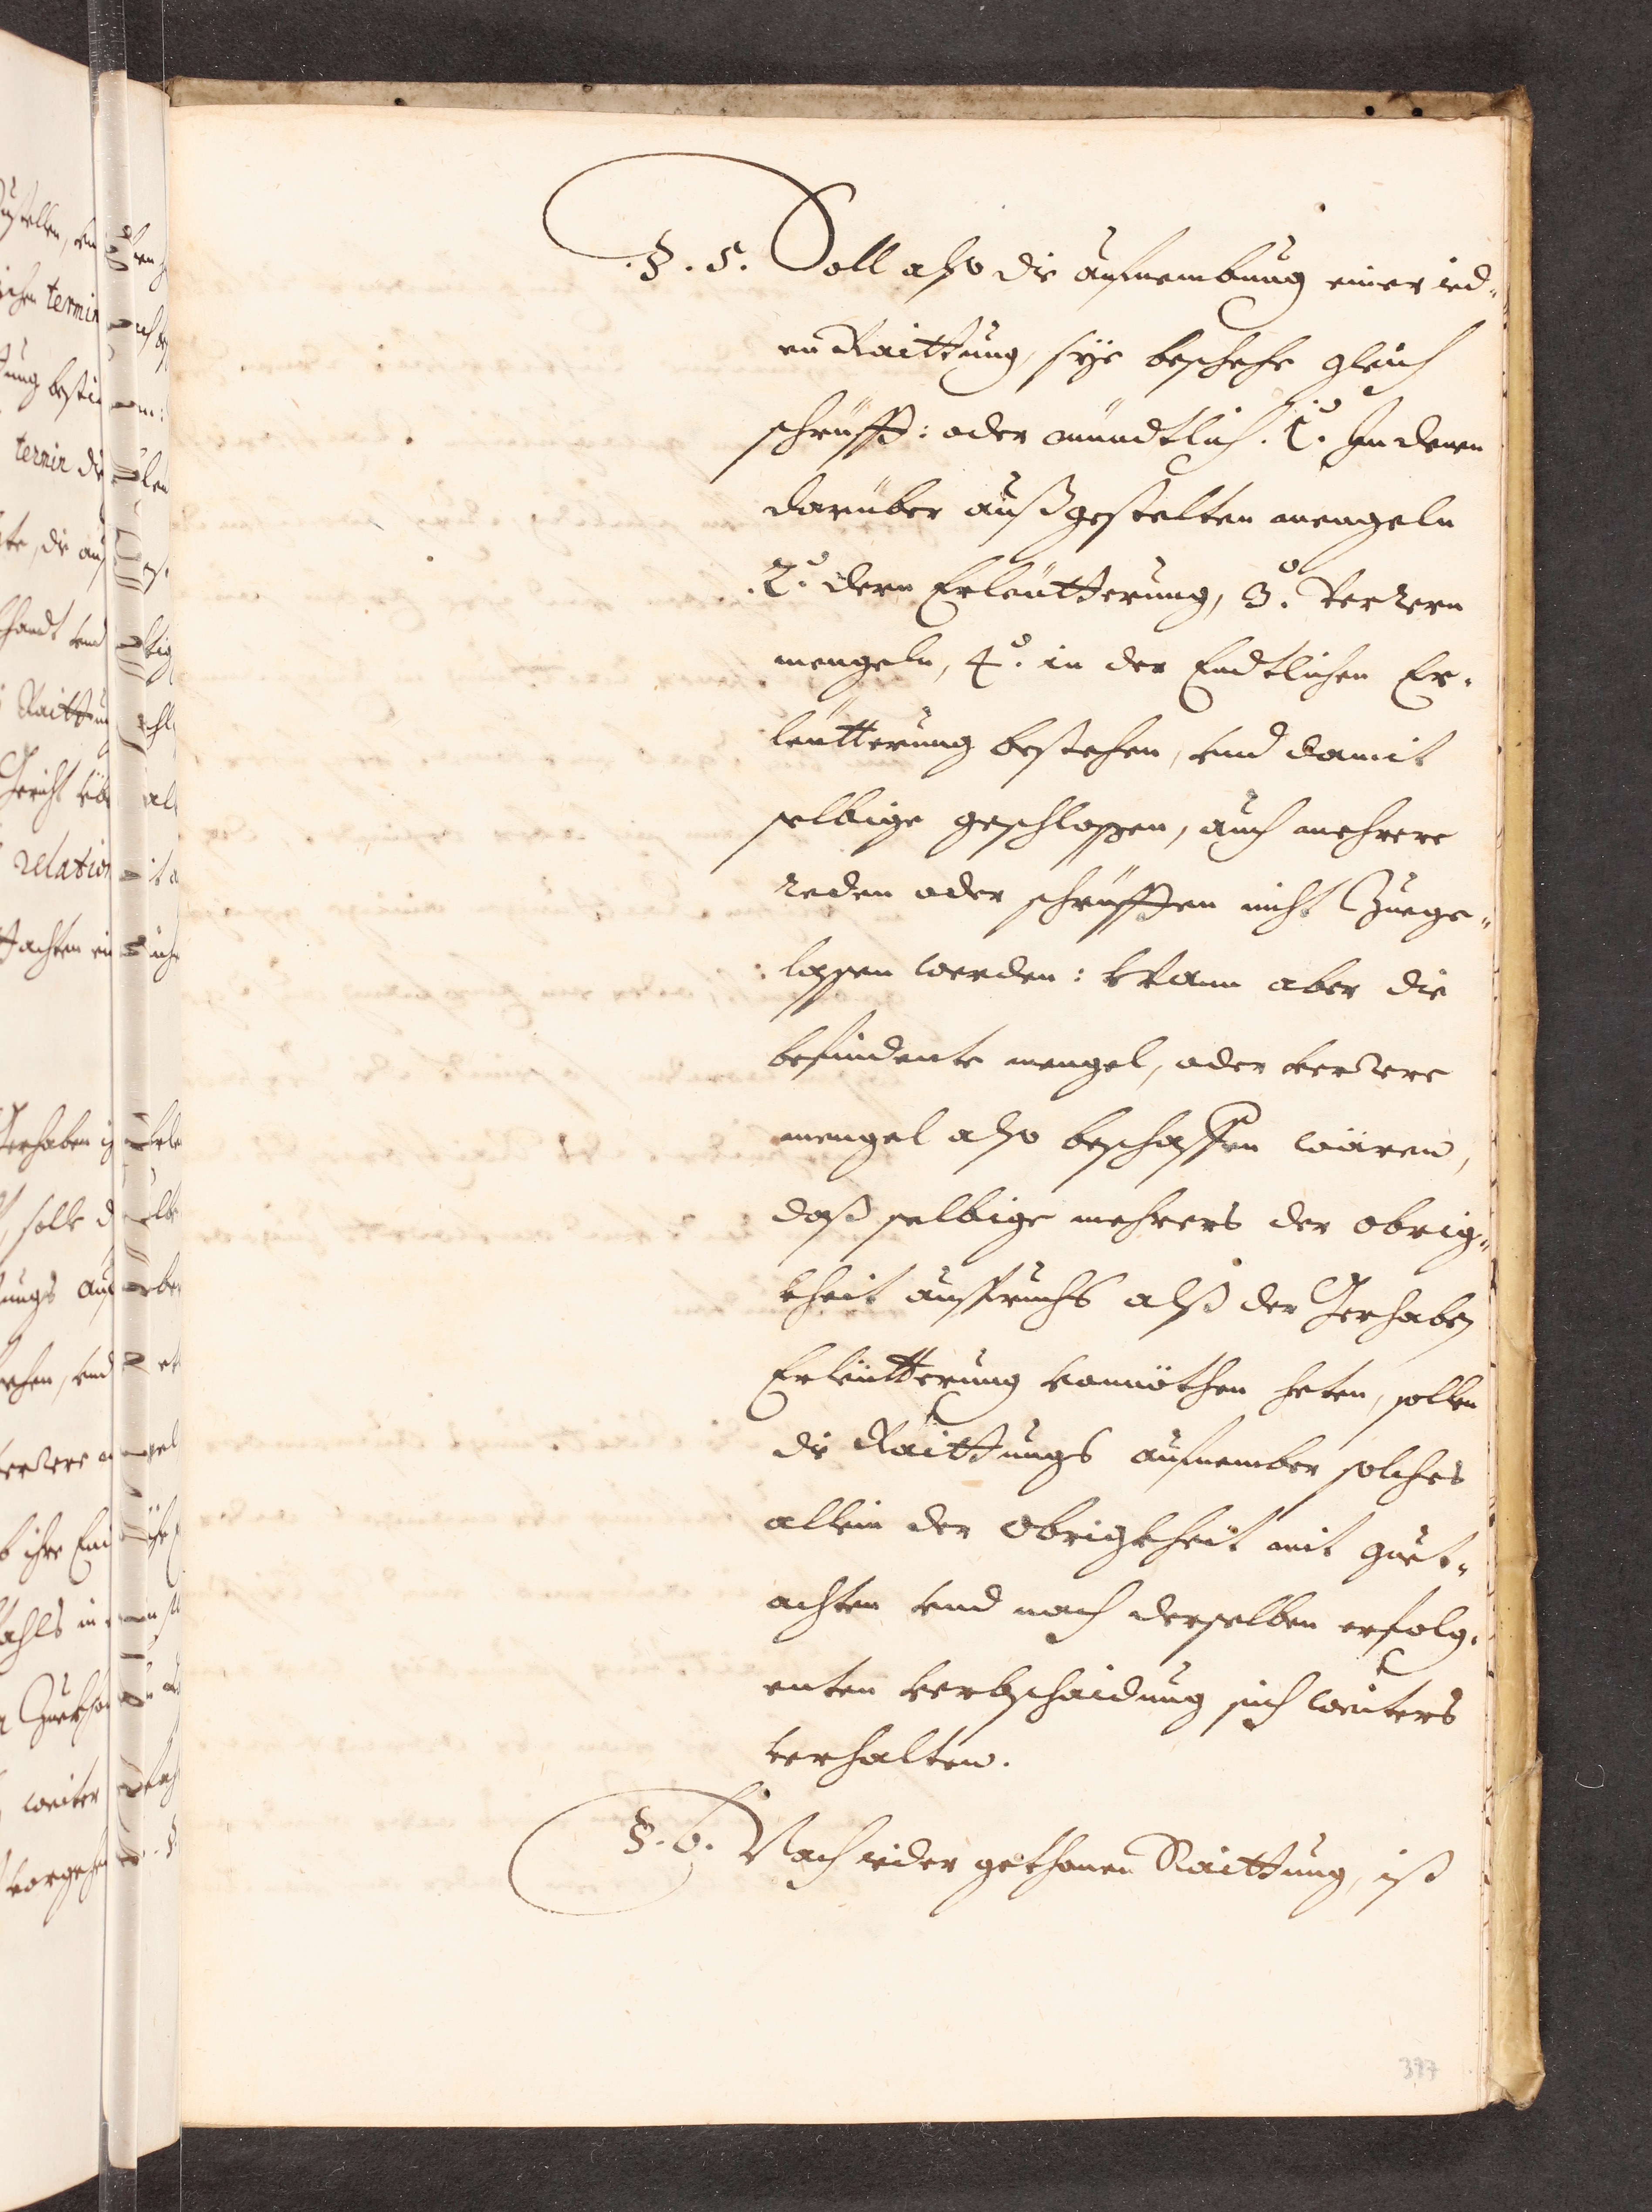 .§. 5. Soll also die aufnembung einer ied-
en Raittung, sÿe beschehe gleich
schrüfft: oder mündtlich. 1.° In denen
darüber außgestelten mengeln
.2.° dern Erleütterung, 3.° Verrern
mengeln, 4.° in der Endtlichen Er-
leütterung bestehen, vnd damit
selbige geschlossen, auch mehrere
reden oder schrüfften nicht Zuege-
lassen werden: Wann aber die
befindente mengel, oder verrere
mengel also beschaffen wären,
daß selbige mehrers der obrig-
kheit außspruchs alß der Gerhaben
Erleütterung vonnöthen heten, sollen
die Raittungs aufnember solches
allein der Obrigkheit mit guet-
achten vnd nach derselben erfolg-
enten verbschaidung sich weiters
verhalten.
§. 6. Nach ieder gethanen Raittung, ist
377